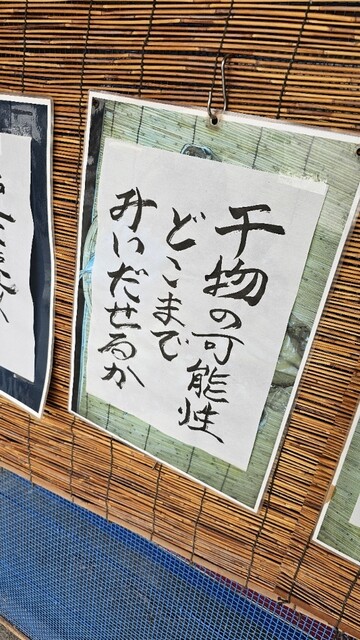 干物の可能性
どこまで
みいだせるか